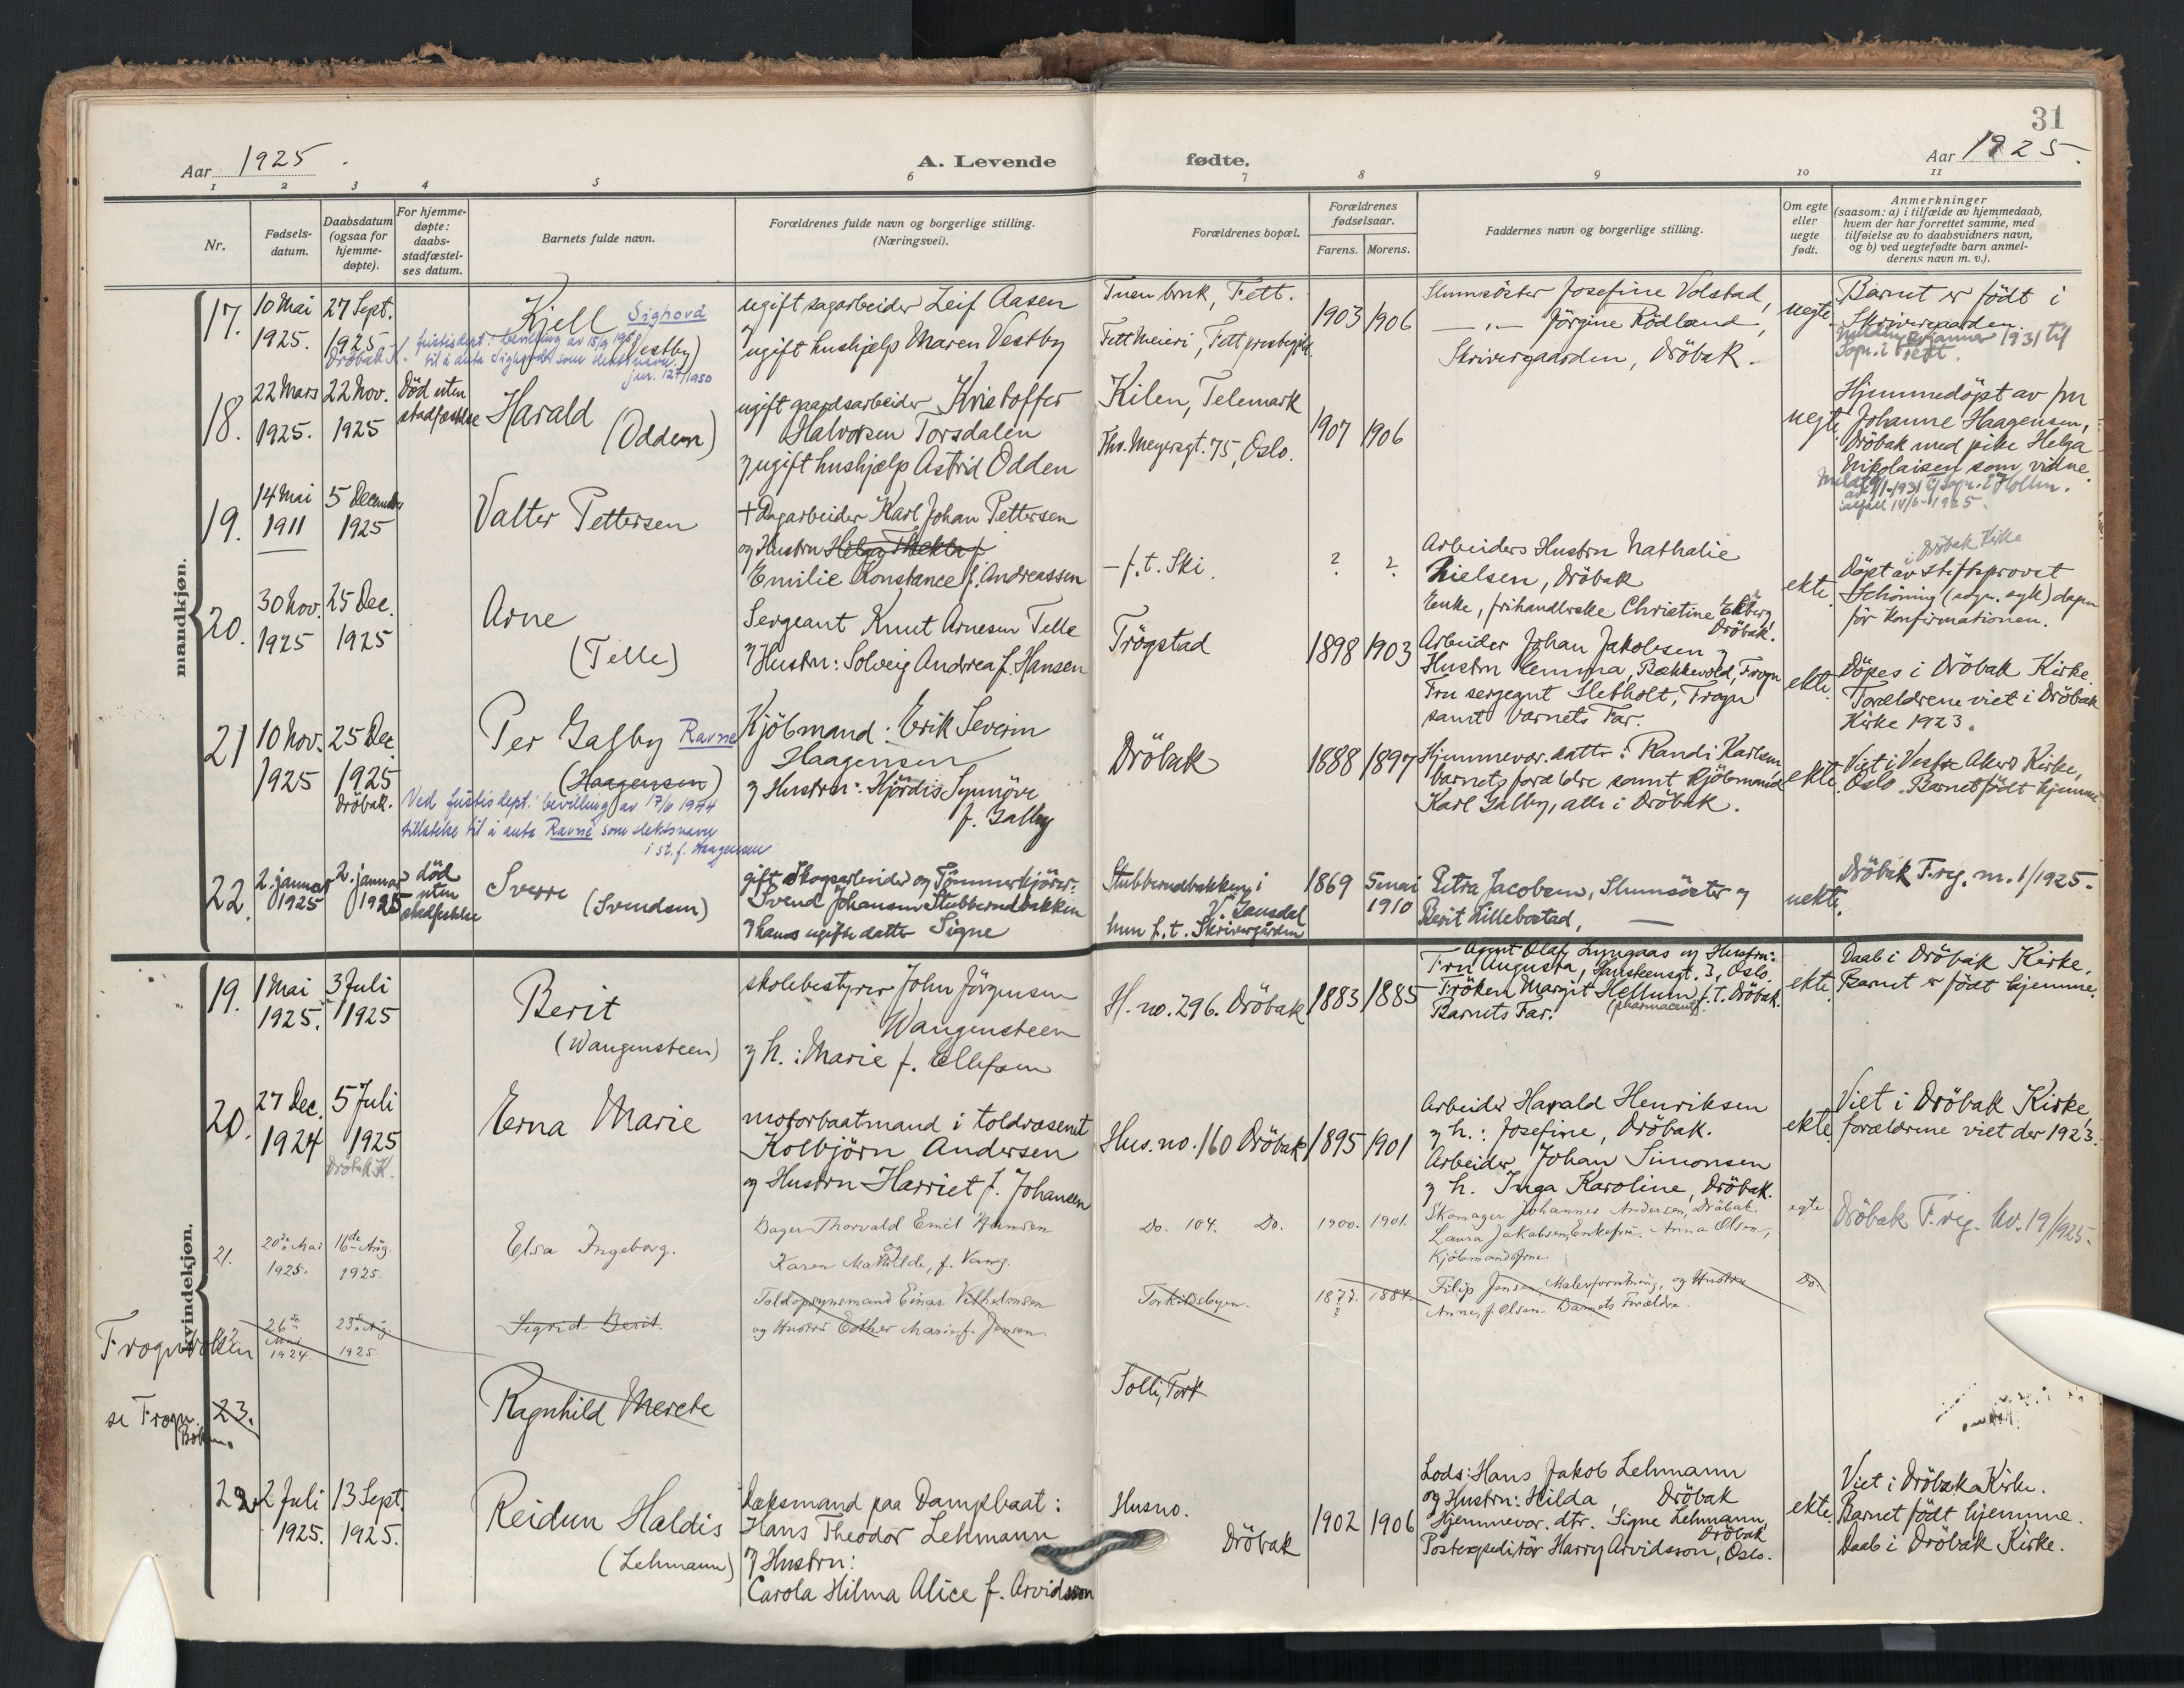 31
Aar 1925.
A. Levende
fødte.
Aar 1925.
1 2 3 4 5 6 7 8 9 10 11
Nr.
Fødsels-
datum.
Daabsdatum
(ogsaa for
hjemme-
døpte).
For hjemme-
døpte:
daabs-
stadfæstel-
ses datum.
Barnets fulde navn.
Forældrenes fulde navn og borgerlige stilling.
(Næringsvei).
Forældrenes bopæl.
Forældrenes
fødselsaar.
Farens. Morens.
Faddernes navn og borgerlige stilling.
Om egte
eller
uegte
født.
Anmerkninger
(saasom: a) i tilfælde av hjemmedaab,
hvem der har forrettet samme, med
tilføielse av to daabsvidners navn,
og b) ved uegtefødte barn anmel-
derens navn m. v.).
mandkjøn.
17.
10 Mai
1925.
27 Sept.
1925
Dröbak K.
Kjell Sighovd
(Vestby)
justisdept. bevilling av 15/9 1950
til å anta Sighovd som slektsnavn.
jnr. 127/1950
ugift sagarbeider Leif Aasen
og ugift hushjelp Maren Vestby
Tuen bruk, Fett.
Fett Meieri, Fett
1903 1906
Slumsöster Josefine Volstad,
— " — Jörgine Rödland,
Skrivergaarden, Dröbak.
uegte.
Barnet er födt i
Skrivergaarden.
1931 til
Sogn. i Fett.
18.
22 Mars
1925.
22 Nov.
1925
Död uten
stadfæstelse
Harald
(Odden)
ugift gaardsarbeider Kristoffer
Halvorsen Torsdalen
og ugift hushjælp Astrid Odden
Kilen, Telemark
Thv. Meyersgt. 75, Oslo.
1907 1906
uegte.
Hjemmedöpt av fru
Johanne Haagensen,
Dröbak med pike Helga
Nikolaisen som vidne.
1931 til Sogn. i Hollen.
14/6-1925.
19.
14 Mai
1911
5 December
1925
Valter Pettersen
† Dagarbeider Karl Johan Pettersen
og Hustru Helga Thekla f.
Emilie Konstance f. Andreassen
— f. t. Ski.
? ?
Arbeiders Hustru Nathalie
Nielsen, Dröbak
Enke, frihandlerske Christine Ekberg,
Dröbak.
ekte.
i Dröbak Kirke
Döpt av stiftsprovst
Schöning (sogn. syk) dagen
för Konfirmationen.
20.
30 Nov.
1925
25 Dec.
1925
Arne
(Telle)
Sergeant Knut Arnesen Telle
og Hustru: Solveig Andrea f. Hansen
Trögstad
1898 1903
Arbeider Johan Jakobsen og
Hustru Emma, Bækkevold, Frogn
Fru sergeant Sletholt, Frogn
samt barnets Far.
ekte.
Döpes i Dröbak Kirke.
Forældrene viet i Dröbak
Kirke 1923.
21
10 Nov.
1925
25 Dec
1925
Dröbak.
Per Galby Ravne
(Haagensen)
Ved justisdept. bevilling av 17/6 1944
tillatelse til å anta Ravne som slektsnavn
i st. f. Haagensen
Kjöbmand: Erik Severin
Haagensen
og Hustru: Hjördis Synnöve
f. Galby
Dröbak
1888 1897
Hjemmevær. datter: Randi Karlsen
barnets forældre samt kjöbmand
Karl Galby, alle i Dröbak.
ekte.
Viet i Vestre Akers Kirke,
Oslo. Barnet födt hjemme.
22.
2. januar
1925
2. januar
1925
död
uten
stadfestelse
Sverre
(Svendsen)
gift Skogsarbeider og Tömmerkjörer:
Svend Johansen Stubberudbakken
og hans ugifte datter Signe
Stubberudbakken i
hun f. t. Skrivergården
1869 5 mai
1910
Petra Jacobsen, Slumsöster og
Berit Lillebostad, —
uekte.
Dröbak F.reg. nr. 1/1925.
kvindekjøn.
19.
1 Mai
1925.
3 Juli
1925
Berit
(Wangensteen)
skolebestyrer John Jörgensen
Wangensteen
og h.: Marie f. Ellefsen
H. no. 296. Dröbak
1883 1885
Agent Olaf Lyngaas og Hustru:
Fru Augusta, 3, Oslo.
Fröken Margit Hellum f. t. Dröbak.
(pharmaceut)
Barnets Far.
ekte.
Daab i Dröbak Kirke.
Barnet er födt hjemme.
20.
27 Dec.
1924
5 Juli
1925
Dröbak K.
Erna Marie
motorbaatmand i toldvæsenet
Kolbjörn Andersen
og Hustru Harriet f. Johansen
Hus. no. 160 Dröbak
1895 1901
Arbeider Harald Henriksen
og h.: Josefine, Dröbak.
Arbeider Johan Simonsen
og h. Inga Karoline, Dröbak.
ekte
Viet i Dröbak Kirke,
forældrene viet der 1923.
21.
20de Mai
1925.
16de Aug.
1925
Elsa Ingeborg.
Bager Thorvald Emil Hansen
og
Karen Mathilde, f. Vang.
Do. 104. Do.
1900. 1901.
Skomager Johannes Andersen, Dröbak.
Laura Jakobsen, Enkefru. Anna Olsen,
Kjöbmandsfrue.
egte
Dröbak F.reg. Nr. 19/1925.
Frogn boken
22
26de
Mai
1924.
23de Aug
1925.
Sigrid Berit.
Toldopsynsmand Einar Vilhelmsen
og Hustru Esther Marie f. Jensen.
Torkildsbyen.
1877. 1884.
Filip Jensen, Malerforretning, og Hustru
Anne, f. Olsen. Barnets Forældre.
Do.
se Frogn
Boken.
23.
Ragnhild Merete
Solli, Fork
22
2 Juli
1925.
13 Sept.
1925.
Reidun Haldis
(Lehmann)
Dæksmand paa Dampbaat:
Hans Theodor Lehmann
og Hustru:
Carola Hilma Alice f. Arvidsson
Husno.
Dröbak
1902 1906
Lods: Hans Jakob Lehmann
og Hustru: Hilda, Dröbak
Hjemmevær. dtr. Signe Lehmann,
Dröbak
Postexpeditör Harry Arvidsson, Oslo.
ekte.
Viet i Dröbak Kirke.
Barnet födt hjemme.
Daab i Dröbak Kirke.